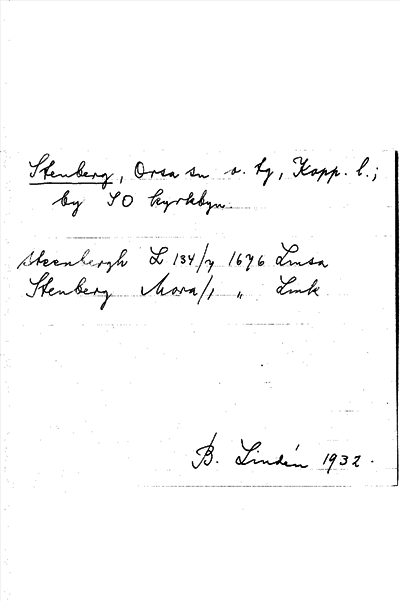 Stenberg, Orsa sn o. tg, Kopp. l.;
by SO kyrkbyn.
Steenbergh L 134/7 1676 Lmsa
Stenberg Mora/1 „ Lmk
B. Lindén 1932.